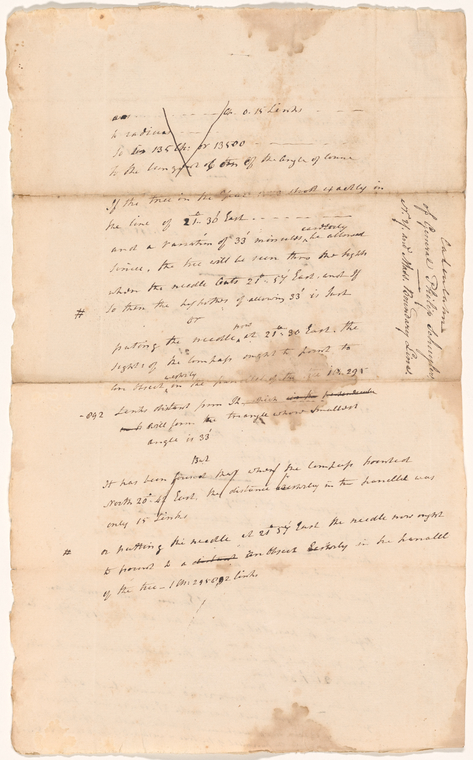 as - - - - - - - - 0.15 Links - - -
to radius
So 135 Ch. or 13500 - - -
to the of the angle of
If the tree on the stood exactly in
the line of 21° 30' East - - - - - -
and a variation of 33' minutes easterly be allowed
Since, the tree will be seen thro the sights
when the needle cuts 21° 57' East, and If
# So then the hypothes of allowing 33' is Just
or
puting the needle now at 21° 30 East, the
sights of the compass ought to point to
an object easterly in the parrallel of the 1 Ch. 295
-092 Links distant from
will form the triangle whose smallest
angle is 33'
But
It has been found that when the compass pointed
North 20° 49' East, the distance Easterly in the parallel was
only 15 Links
# or putting the needle at 21° 57' East the needle now ought
to point to a an object Easterly in the parallel
of the tree - 1 Ch: 295092 links
Calculations
of General Philip Schuyler
N.Y. and Mass Boundary Lines.